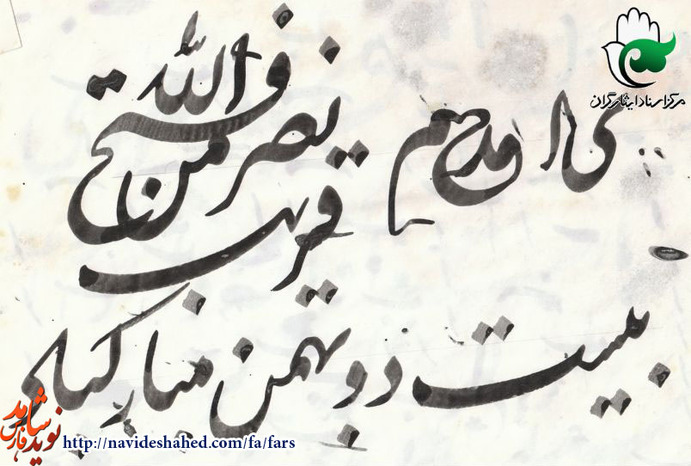 مرکز اسناد ایثارگران
نصر من الله و فتح
قریب
بیست دو بهمن مبارکباد
نوید شاهد
فارس
http://navideshahed.com/fa/fars